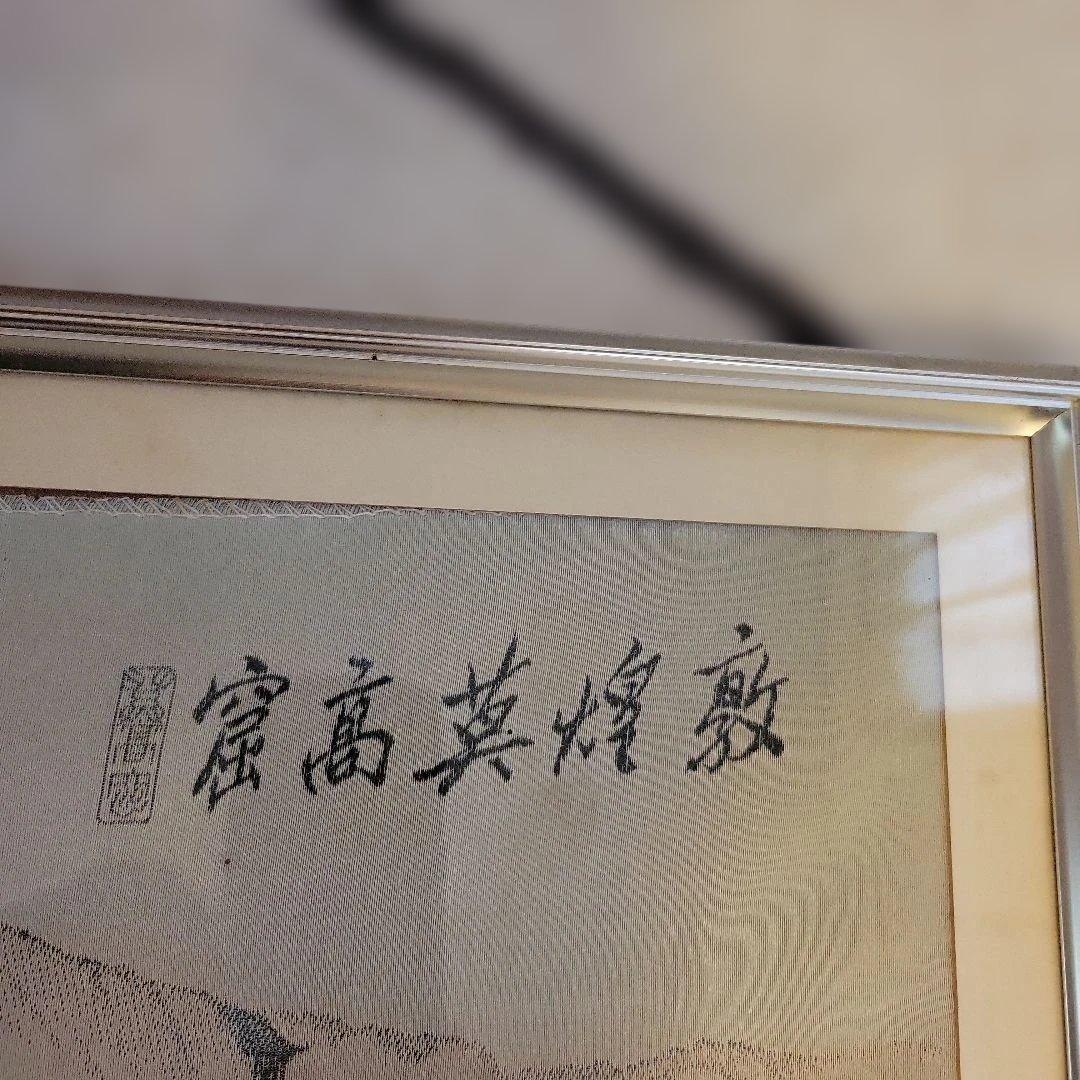 敦煌莫高窟